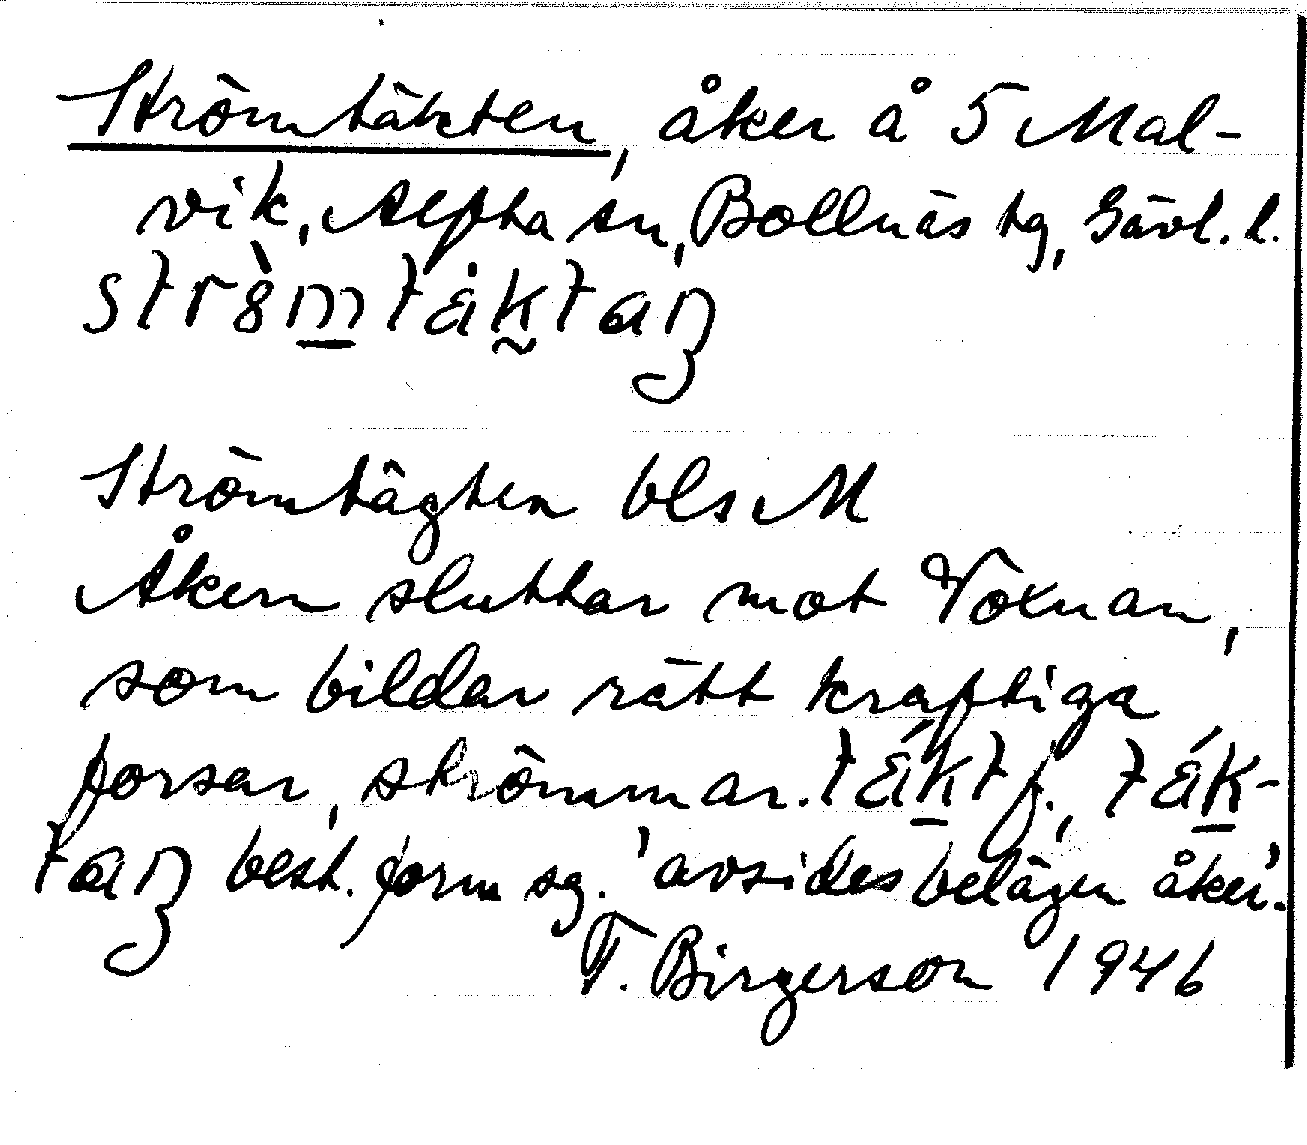 Strömtäkten, åker å 5 Mal-
vik, Alfta sn, Bollnäs tg, Gävl. l.
Strömtägten bls M
Åkern sluttar mot Voxnan,
som bildar rätt kraftiga
forsar, strömmar. täkt f., täk-
taŋ best. form sg. 'avsides belägen åker'.
T. Birgerson 1946